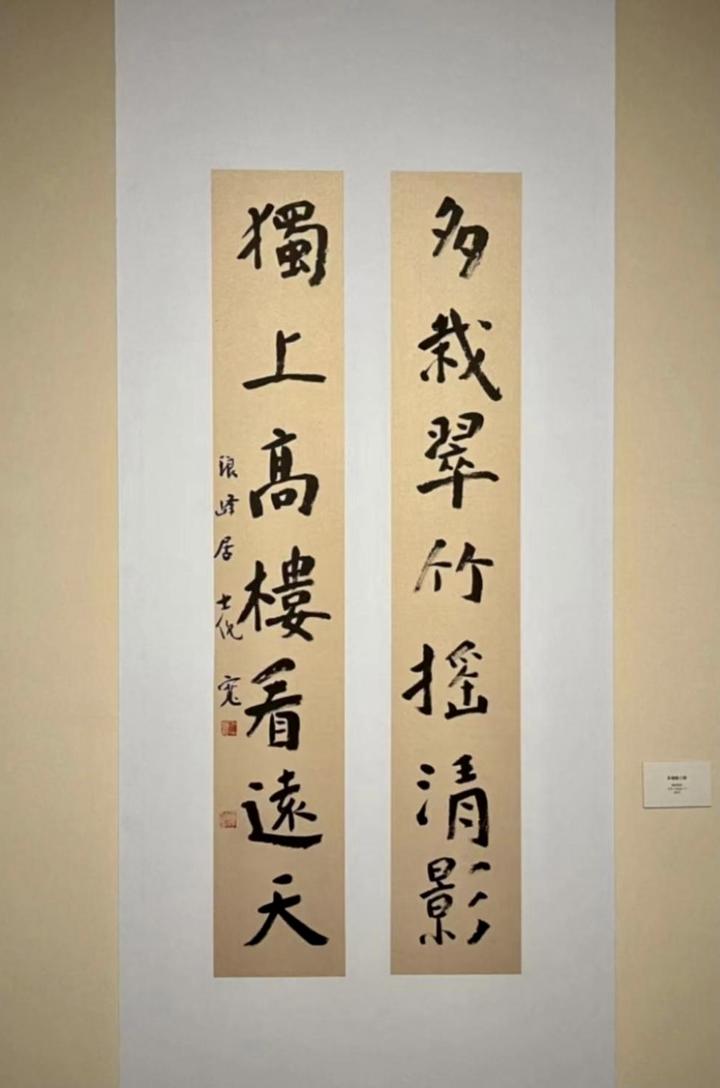 多栽翠竹搖清影
獨上高樓看遠天
琅峰居士倪寬